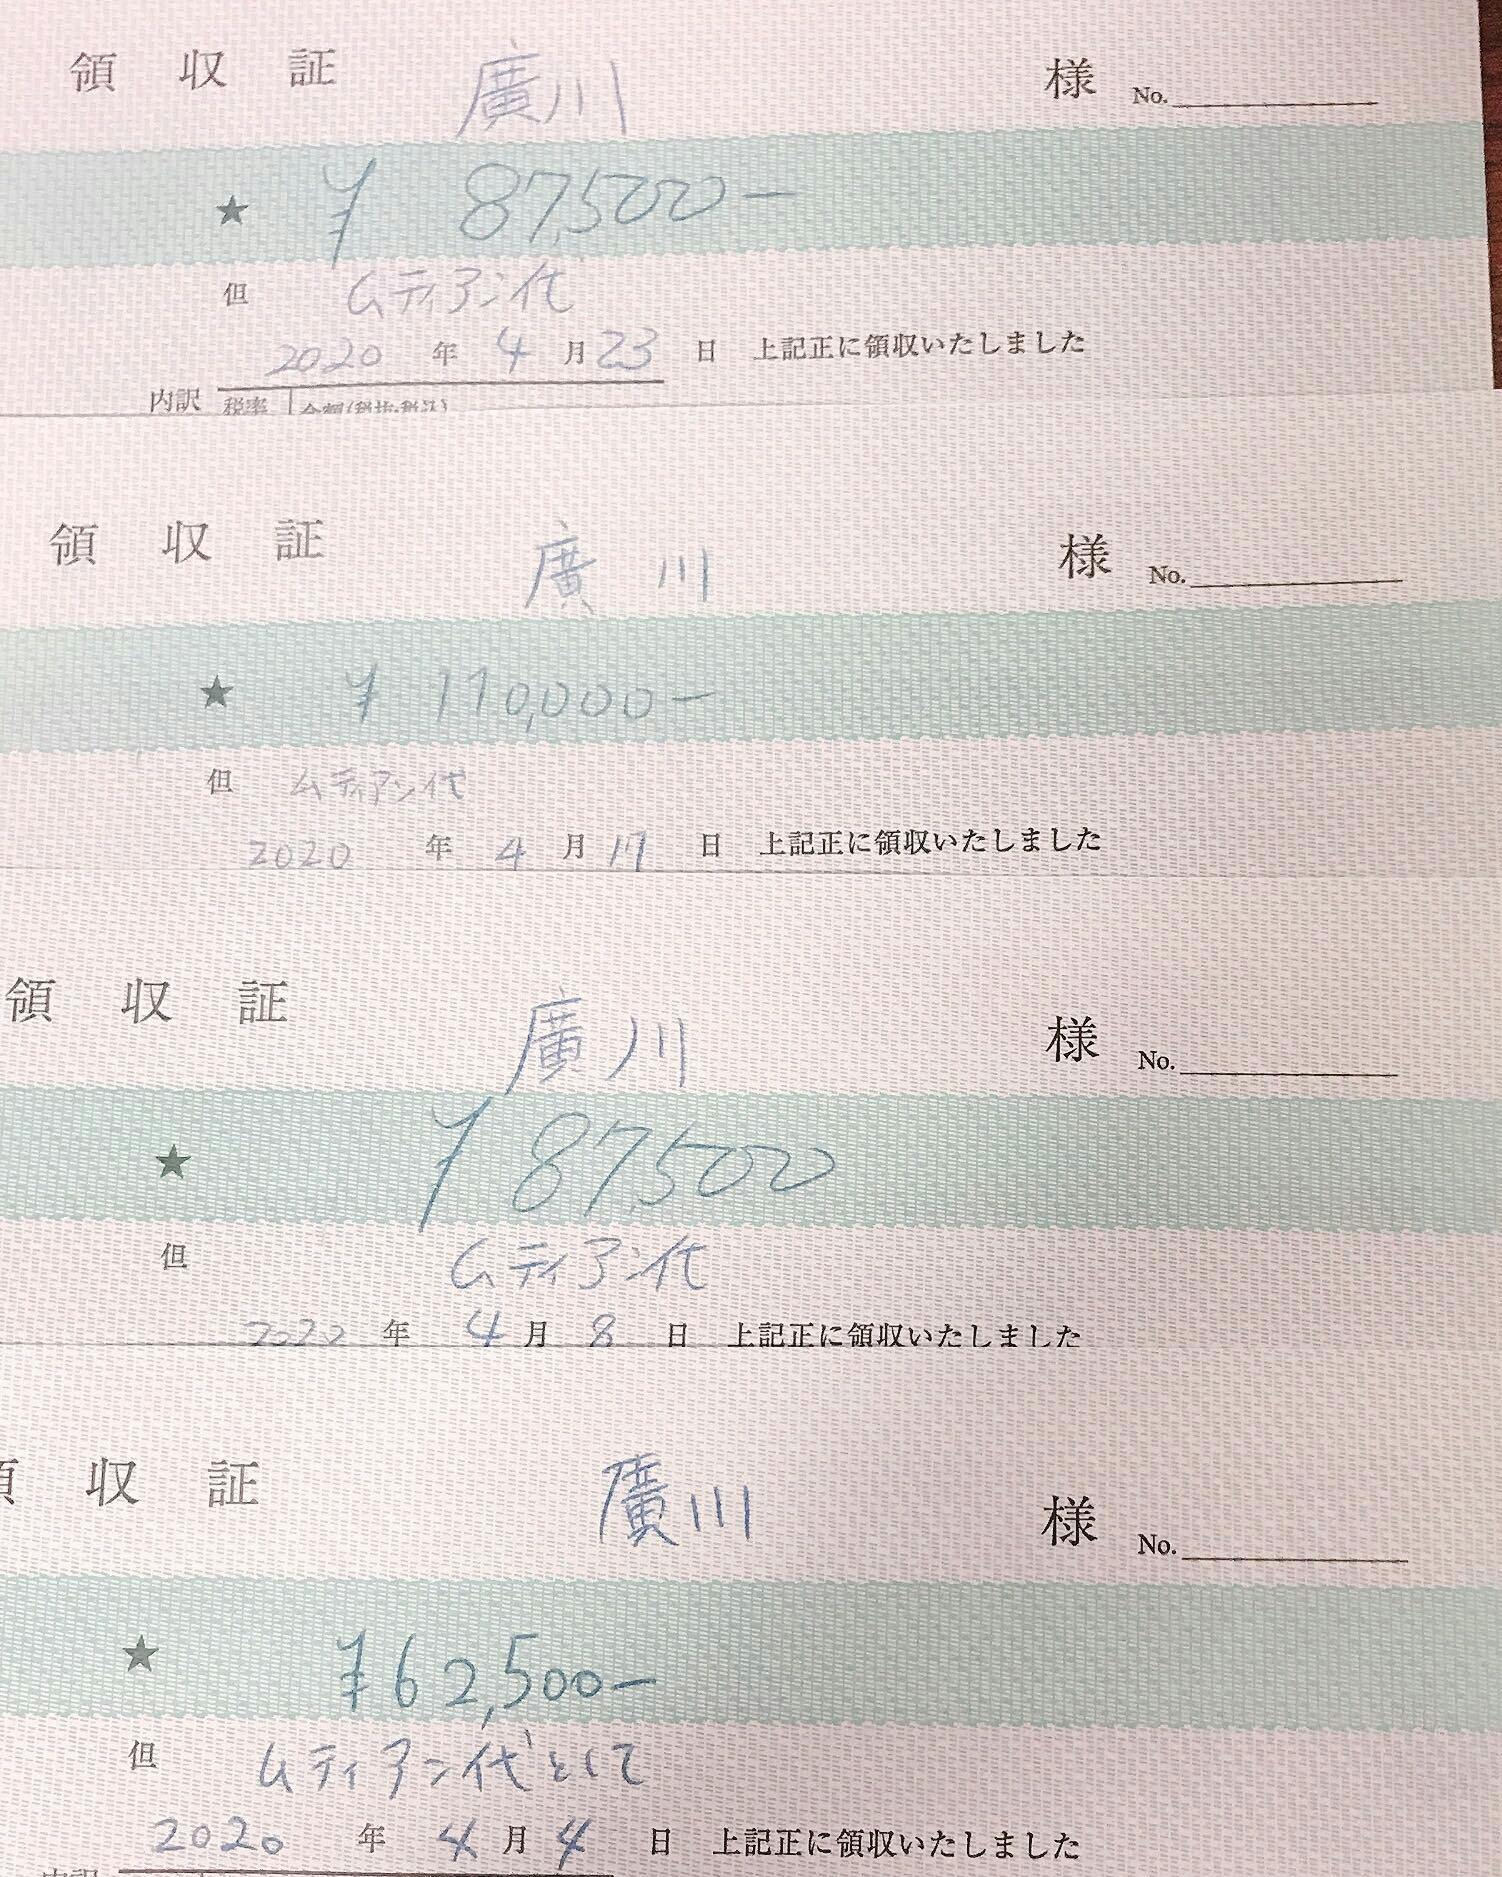 領収証 廣川 様 No.
★ ¥ 87,500-
但 ムディアン代
2020年4月23日 上記正に領収いたしました
内訳 税率 金額(税抜・税込)
領収証 廣川 様 No.
★ ¥ 110,000-
但 ムディアン代
2020年4月17日 上記正に領収いたしました
領収証 廣川 様 No.
★ ¥ 87,500
但 ムディアン代
2020年4月8日 上記正に領収いたしました
領収証 廣川 様 No.
★ ¥62,500-
但 ムディアン代として
2020年4月4日 上記正に領収いたしました
内訳